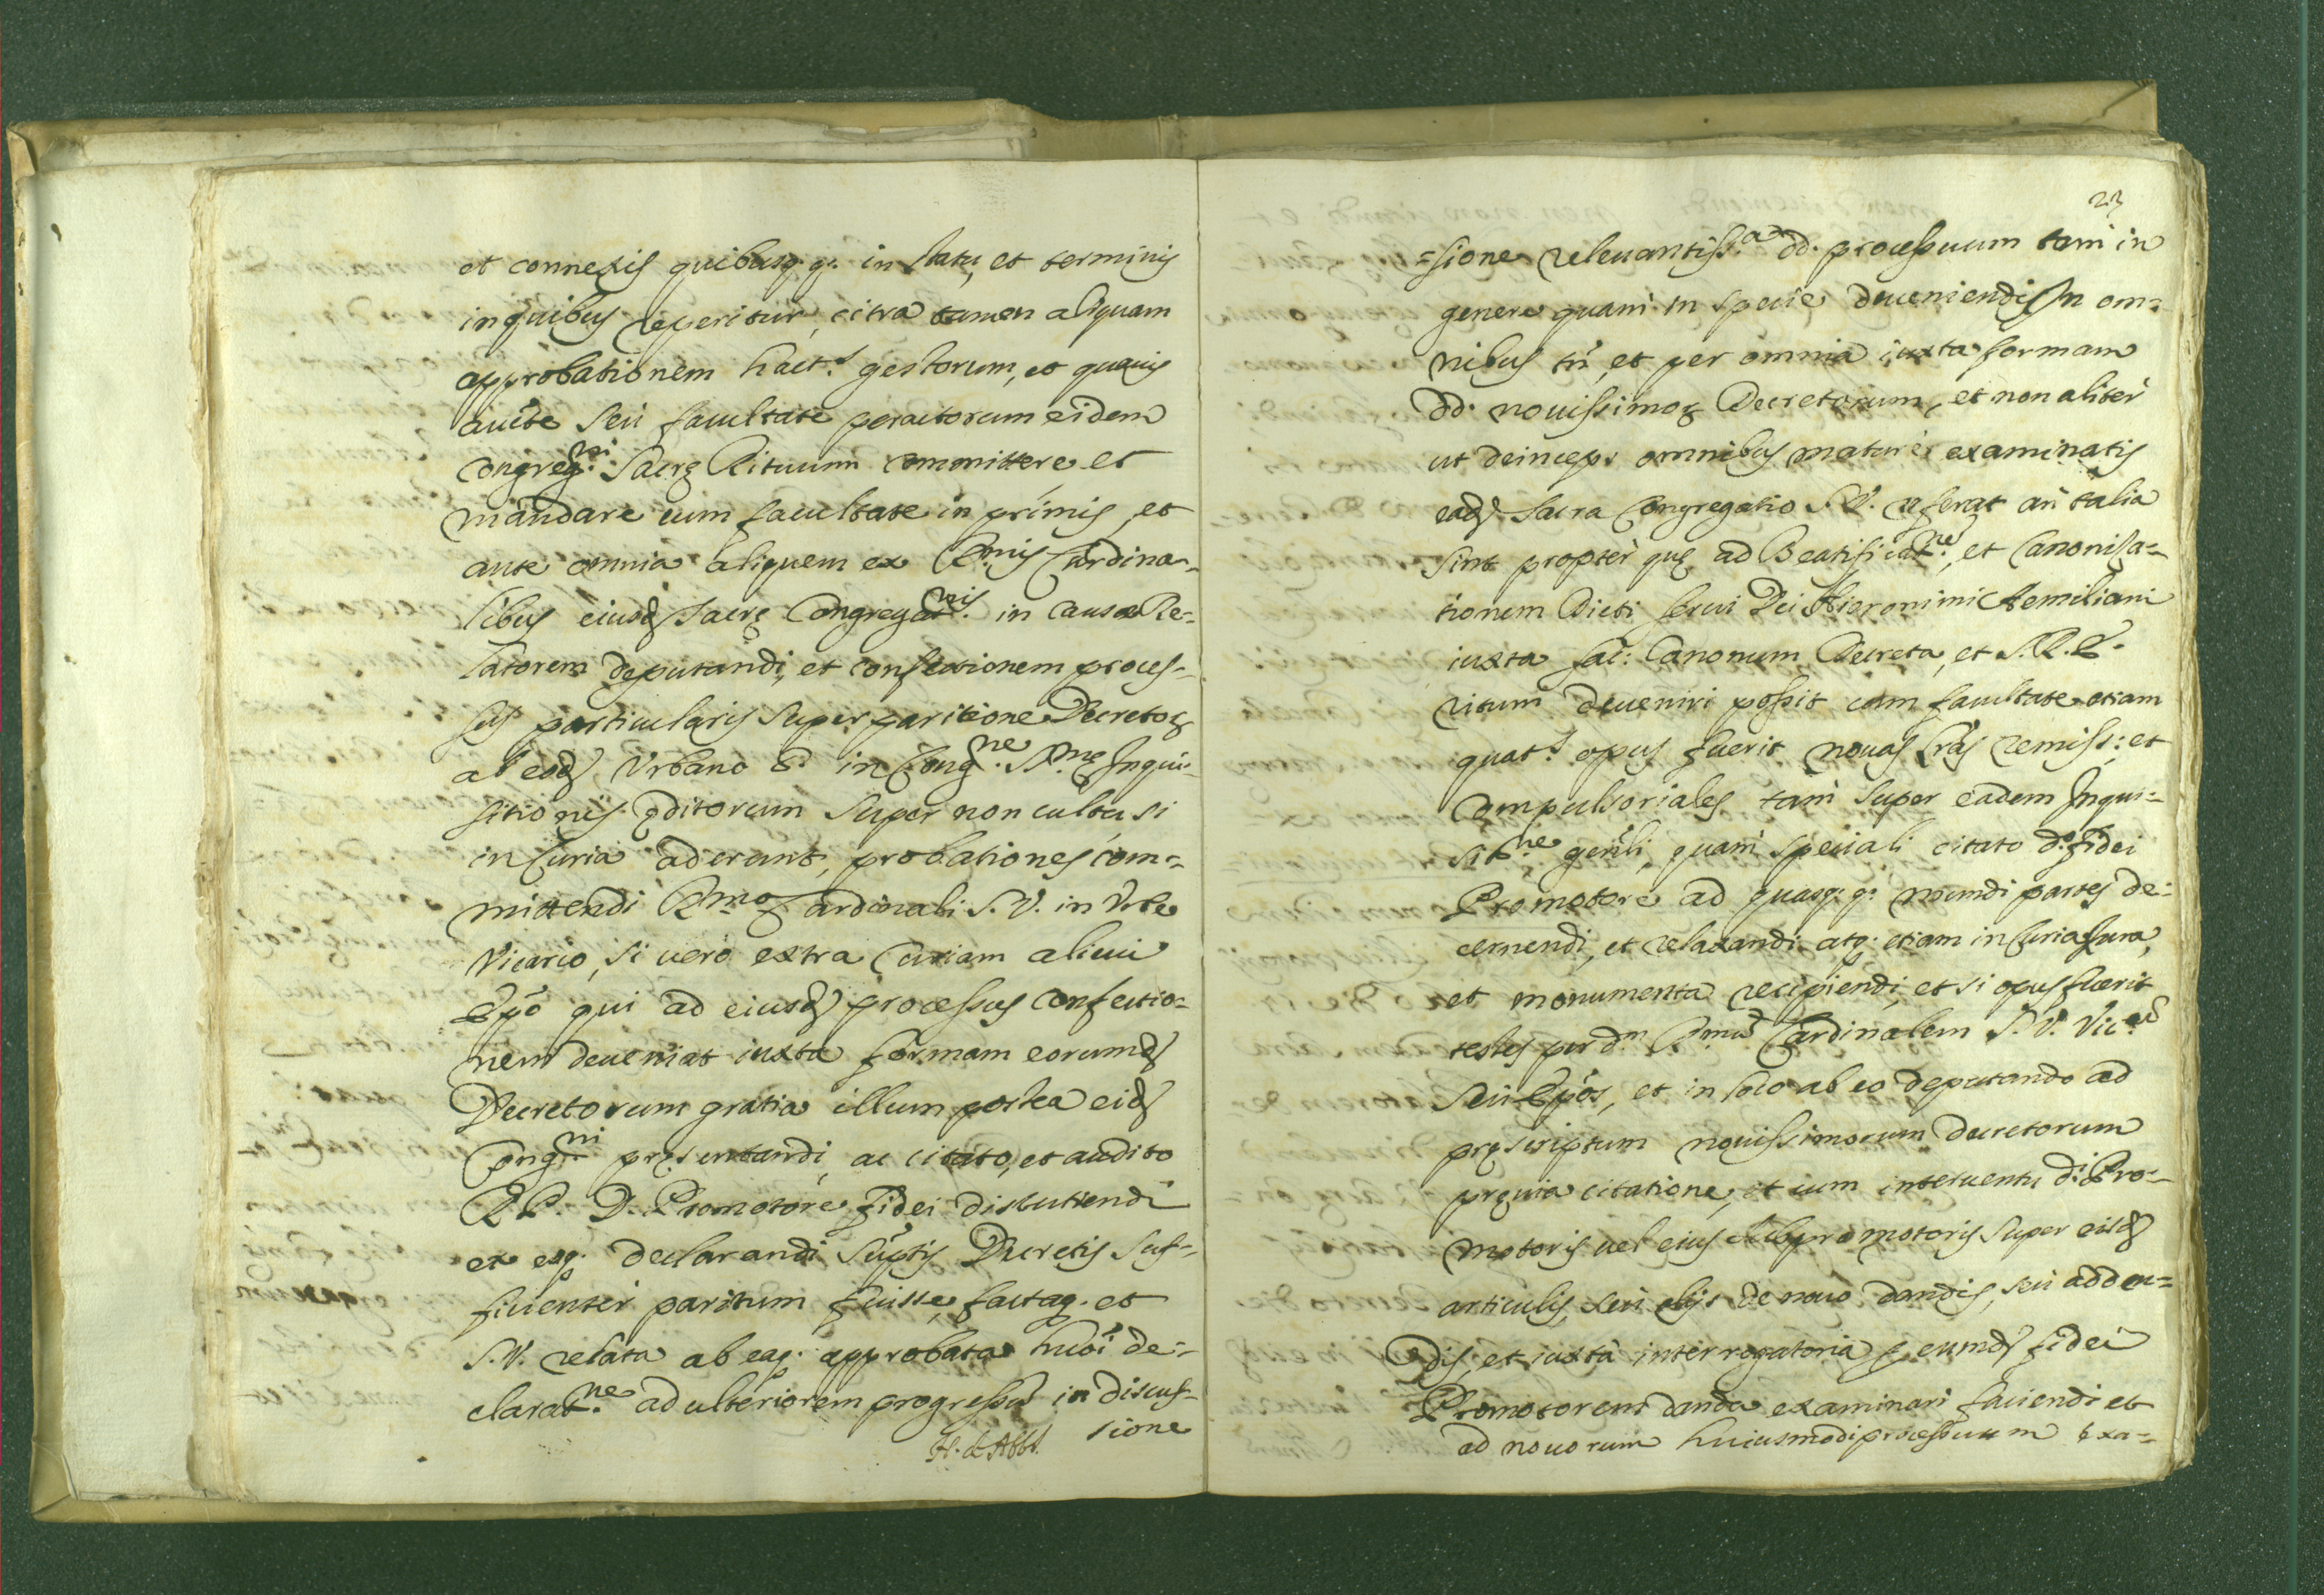 et connexis quibusq.q. in statu, et terminis
in quibus reperitur, citra tamen aliquam
approbationem hact.s gestorum, et quavis
aucte seu facultate peractorum eidem
Congreg.ni Sacrę Rituum committere et
mandare cum facultate in primis, et
ante omnia aliquem ex Emis Cardina-
libus eiusd Sacrę Congregat.nis in causa Re-
latorem deputandi, et confectionem proces-
sus particularis super paritione Decretoꝝ
ab eod Urbano 8.º in Cong.ne S.mę Inqui-
sitionis editorum super non cultu si
in Curia aderunt, probationes com-
mittendi Emo Cardinali S.V. in Urbe
Vicario, si vero extra Curiam alicui
Epo qui ad eiusd processus confectio-
nem deveniat iuxta formam eorumd
Decretorum gratia illum postea eid
Cong.ni pręsentandi, ac citato, et audito
R.P.D. Promotore fidei discutiendi
et eq. declarandi suptis Decretis suf-
ficienter paritum fuisse, factaq. et
S.V. relata ab eaq. approbata huoi de-
clarat.ne ad ulteriorem progressu in discus-
sione
H. de Abbt.
23
=sione relevantiss.a dd. processuum tam in
genere quam in specie deveniendi In om-
nibus tn, et per omnia iuxta formam
dd. novissimoꝝ Decretorum, et non aliter
ut deinceps omnibus mature examinatis
ead Sacra Congregatio S.V. referat an talia
sint propter quę ad Beatificat.ne, et Canoniza-
tionem Dicti servi Dei Hieronimi Aemiliani
iuxta sac: Canonum Decreta, et S.R.E.
ritum deveniri possit cum facultate etiam
quat.s opus fuerit novas Lras remiss: et
compulsoriales tam super eadem Inqui-
sit.ne genli, quam speciali citato d.º fidei
Promotore ad quasq.q. mundi partes de-
cernendi, et relaxandi atq. etiam in Curia Iura,
et monumenta recipiendi, et si opus fuerit
testes per dm Emu Cardinalem S.V. Vic.u
seu Epos, et in loco ab eo deputando ad
pręscriptum novissimorum decretorum
pręvia citatione, et cum interventu d.i Pro-
motoris vel eius Subpromotoris super eisd
articulis, seu alijs de novo dandis, seu adden-
dis, et iuxta interrogatoria ꝑ eumd fidei
Promotorem danda examinari faciendi et
ad novorum huiusmodi processuum exa-